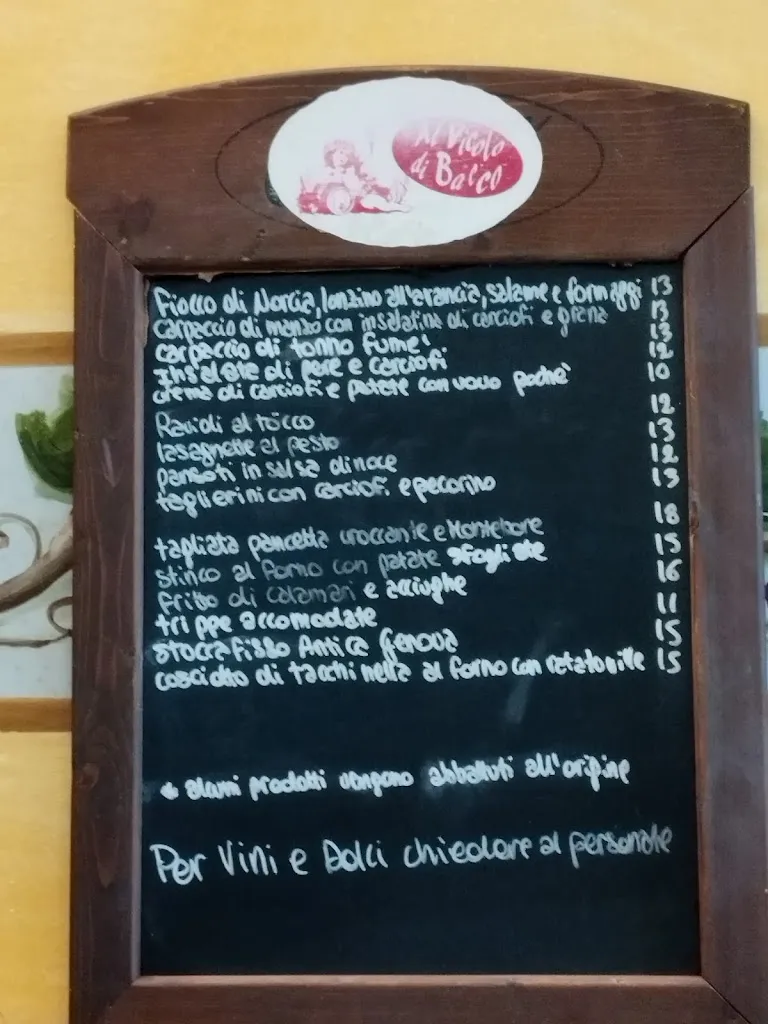 Al Vicolo
di Bacco
Fiocco di Norcia, lonzino all'arancia, salame e formaggi 13
carpaccio di manzo con insalatina di carciofi e grana 13
carpaccio di tonno fume' 13
Insalata di pere e carciofi 12
crema di carciofi e patate con uovo pochè 10
Ravioli al tocco 12
lasagnette al pesto 13
pansoti in salsa di noce 12
taglierini con carciofi e pecorino 13
tagliata pancetta croccante e Montebore 18
stinco al forno con patate sfogliate 15
fritto di calamari e acciughe 16
trippe accomodate 11
stoccafisso Antica Genova 15
cosciotto di tacchinella al forno con ratatouille 15
* alcuni prodotti vengono abbattuti all'origine
Per Vini e Dolci chiedere al personale